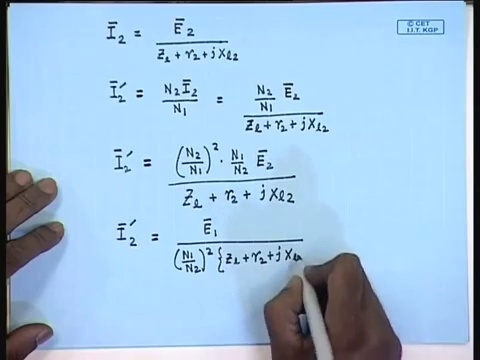 © CET
I.I.T. KGP
Ī₂ = Ē₂ / (Z_l + r₂ + j X_l2)
Ī₂′ = N₂Ī₂ / N₁ = (N₂/N₁) Ē₂ / (Z_l + r₂ + j X_l2)
Ī₂′ = (N₂/N₁)² · (N₁/N₂) Ē₂ / (Z_l + r₂ + j X_l2)
Ī₂′ = Ē₁ / (N₁/N₂)² {Z_l + r₂ + j X_l2